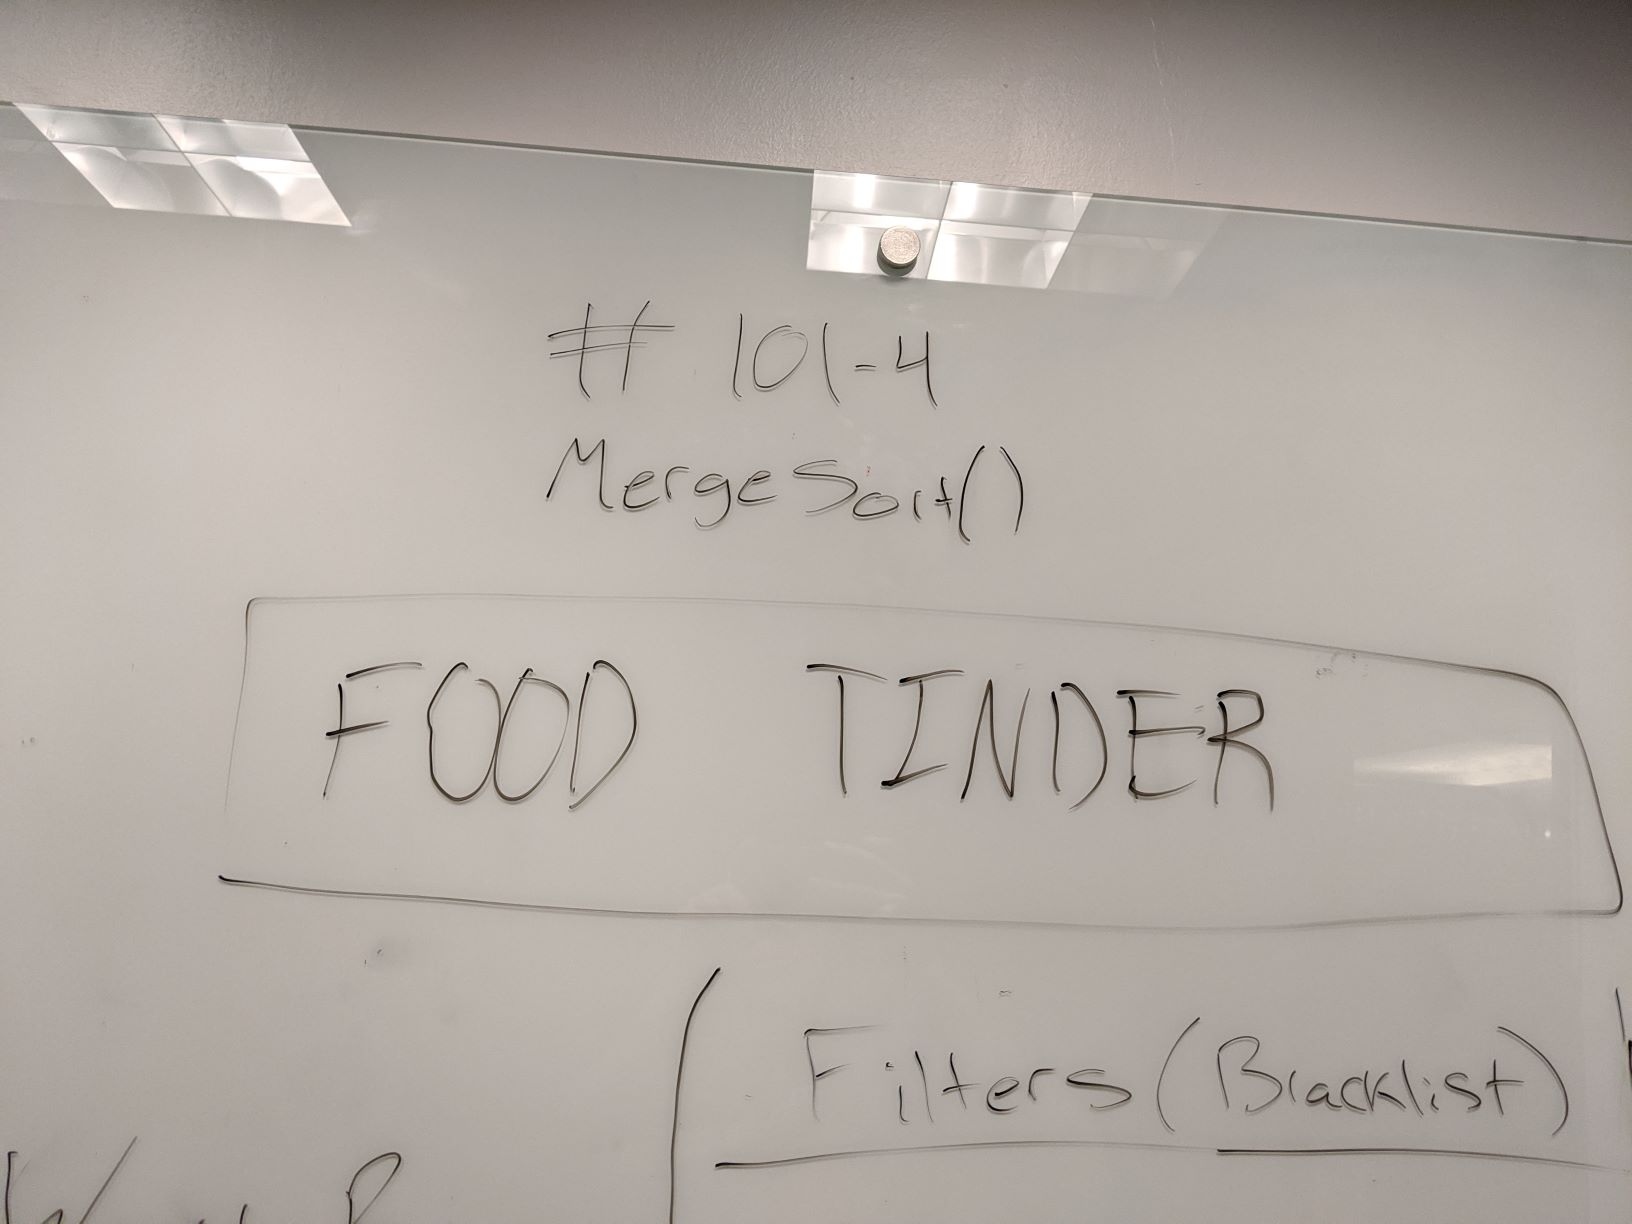 # 101-4
MergeSort()
FOOD TINDER
Filters (Blacklist)